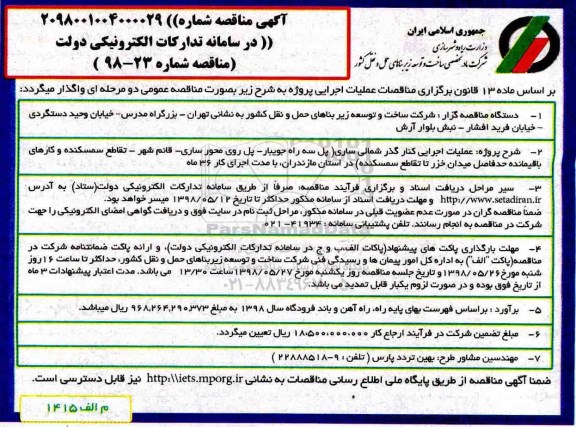 جمهوری اسلامی ایران
وزارت راه و شهرسازی
شرکت مادر تخصصی ساخت و توسعه زیربناهای حمل و نقل کشور
آگهی مناقصه شماره)) ۲۰۹۸۰۰۱۰۰۴۰۰۰۰۲۹
(( در سامانه تدارکات الکترونیکی دولت
(مناقصه شماره ۲۳-۹۸ )
بر اساس ماده ۱۳ قانون برگزاری مناقصات عملیات اجرایی پروژه به شرح زیر بصورت مناقصه عمومی دو مرحله ای واگذار میگردد:
۱- دستگاه مناقصه گزار : شرکت ساخت و توسعه زیر بناهای حمل و نقل کشور به نشانی تهران - بزرگراه مدرس- خیابان وحید دستگردی
- خیابان فرید افشار - نبش بلوار آرش
۲- شرح پروژه: عملیات اجرایی کنار گذر شمالی ساری( پل سه راه جویبار- پل روی محور ساری- قائم شهر - تقاطع سمسکنده و کارهای
باقیمانده حدفاصل میدان خزر تا تقاطع سمسکنده) در استان مازندران، با مدت اجرای کار ۳۶ ماه
۳- سیر مراحل دریافت اسناد و برگزاری فرآیند مناقصه: صرفاً از طریق سامانه تدارکات الکترونیکی دولت(ستاد) به آدرس
http://www.setadiran.ir و مهلت دریافت اسناد از سامانه مذکور حداکثر تا تاریخ ۱۳۹۸/۰۵/۱۲ میسر خواهد بود.
ضمناً مناقصه گران در صورت عدم عضویت قبلی در سامانه مذکور، مراحل ثبت نام در سایت فوق و دریافت گواهی امضای الکترونیکی را جهت
شرکت در مناقصه به انجام رسانند. تلفن پشتیبانی سامانه: ۴۱۹۳۴-۰۲۱
۴- مهلت بارگذاری پاکت های پیشنهاد(پاکات الف،ب و ج در سامانه تدارکات الکترونیکی دولت)، و ارائه پاکت ضمانتنامه شرکت در
مناقصه(پاکت "الف") به اداره کل امور پیمان ها و رسیدگی فنی شرکت ساخت و توسعه زیربناهای حمل و نقل کشور، حداکثر تا ساعت ۱۶ روز
شنبه مورخ ۱۳۹۸/۰۵/۲۶ و تاریخ جلسه مناقصه روز یکشنبه مورخ ۱۳۹۸/۰۵/۲۷ ساعت ۱۳/۳۰ می باشد. مدت اعتبار پیشنهادات ۳ ماه
از تاریخ فوق بوده و در صورت لزوم یکبار قابل تمدید می باشد.
۵- برآورد : براساس فهرست بهای پایه راه، راه آهن و باند فرودگاه سال ۱۳۹۸ به مبلغ ۹۶۸,۲۶۴,۲۹۰,۳۷۳ ریال میباشد.
۶- مبلغ تضمین شرکت در فرآیند ارجاع کار ۱۸,۵۰۰,۰۰۰,۰۰۰ ریال تعیین میگردد.
۷- مهندسین مشاور طرح: بهین تردد پارس ( تلفن : ۹-۲۲۸۸۸۵۱۸ )
ضمناً آگهی مناقصه از طریق پایگاه ملی اطلاع رسانی مناقصات به نشانی http:\\iets.mporg.ir نیز قابل دسترسی است.
م الف ۱۴۱۵